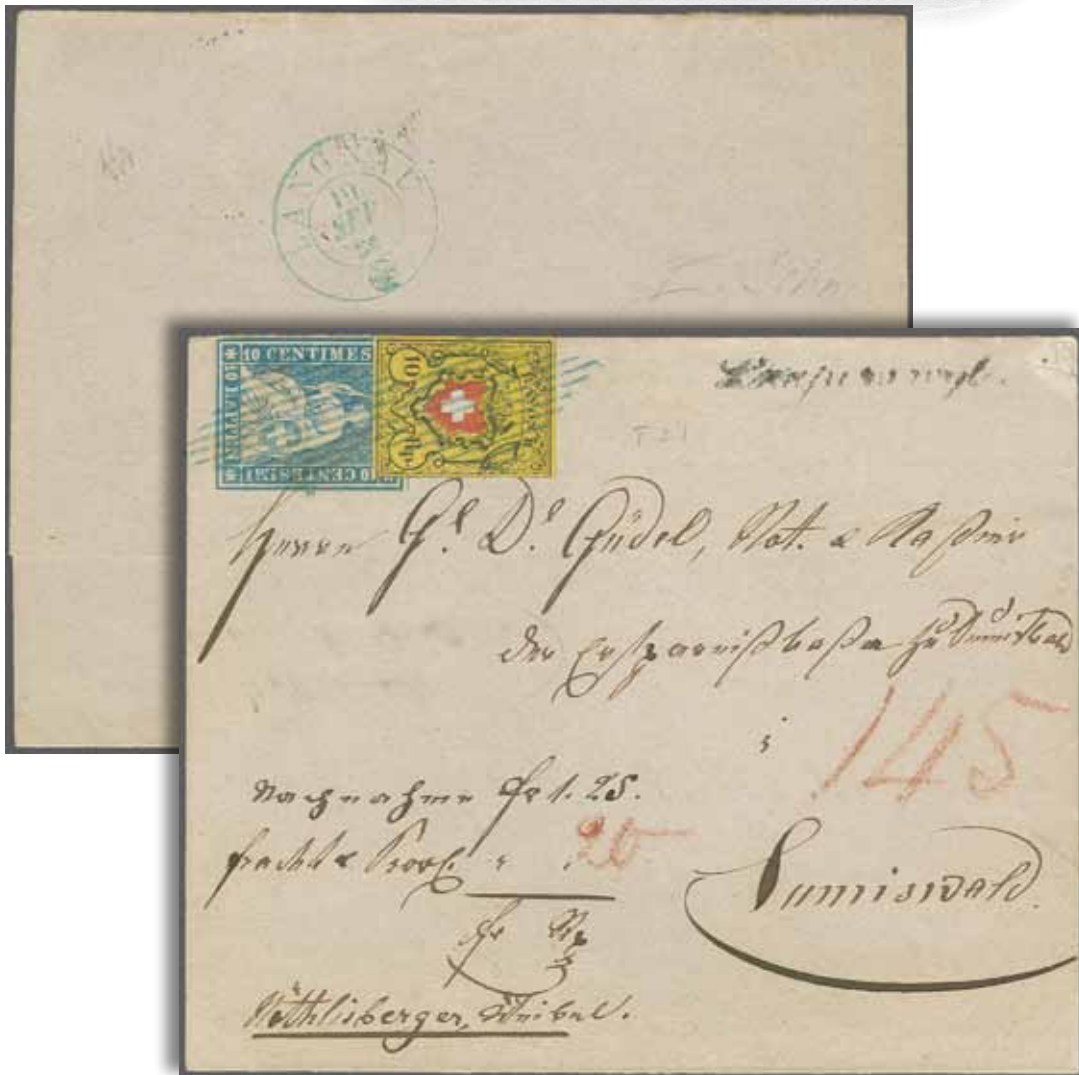 LANGNAU
10 CENTIMES
10 RAPPEN
10 CENTESIMI
10 Rp.
T24
Herrn Gl. Dl. Güdel, Not. & Kaßier
der Ersparnißkaßa zu Sumiswald
145
Nachnahme fr 1. 25.
fracht & Prov. " " 20
fr Rp
Sumiswald.
Röthlisberger, Weibel.